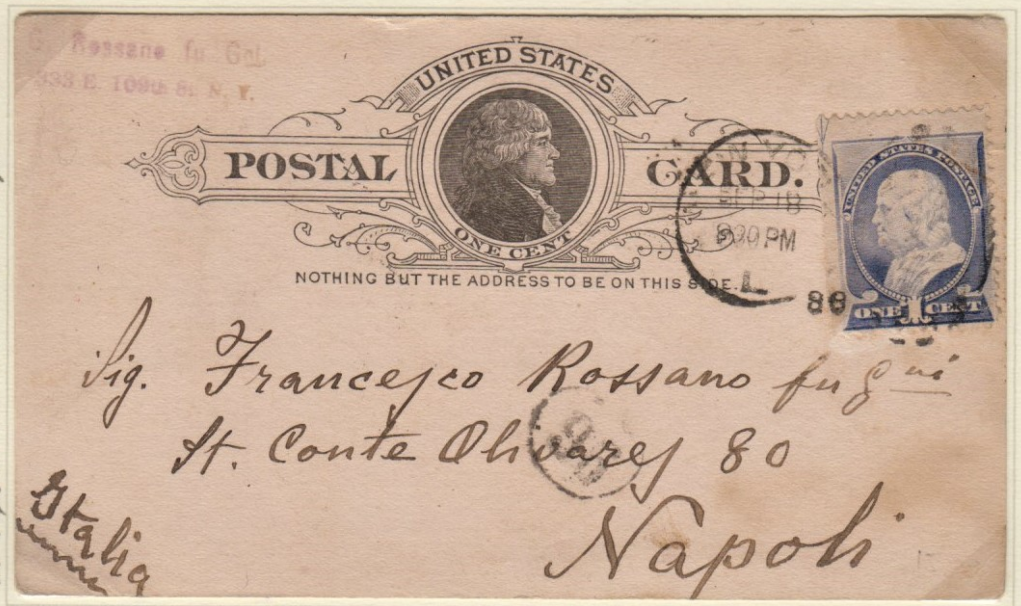 Rossano fu Gni
E. 109th St. N. Y.
UNITED STATES
POSTAL CARD.
ONE CENT
NOTHING BUT THE ADDRESS TO BE ON THIS SIDE.
NEW YO
SEP 18
PM
88
UNITED STATES POSTAGE
ONE 1 CENT
Sig. Francesco Rossano fu Gni
St. Conte Olivares 80
Napoli
Italia